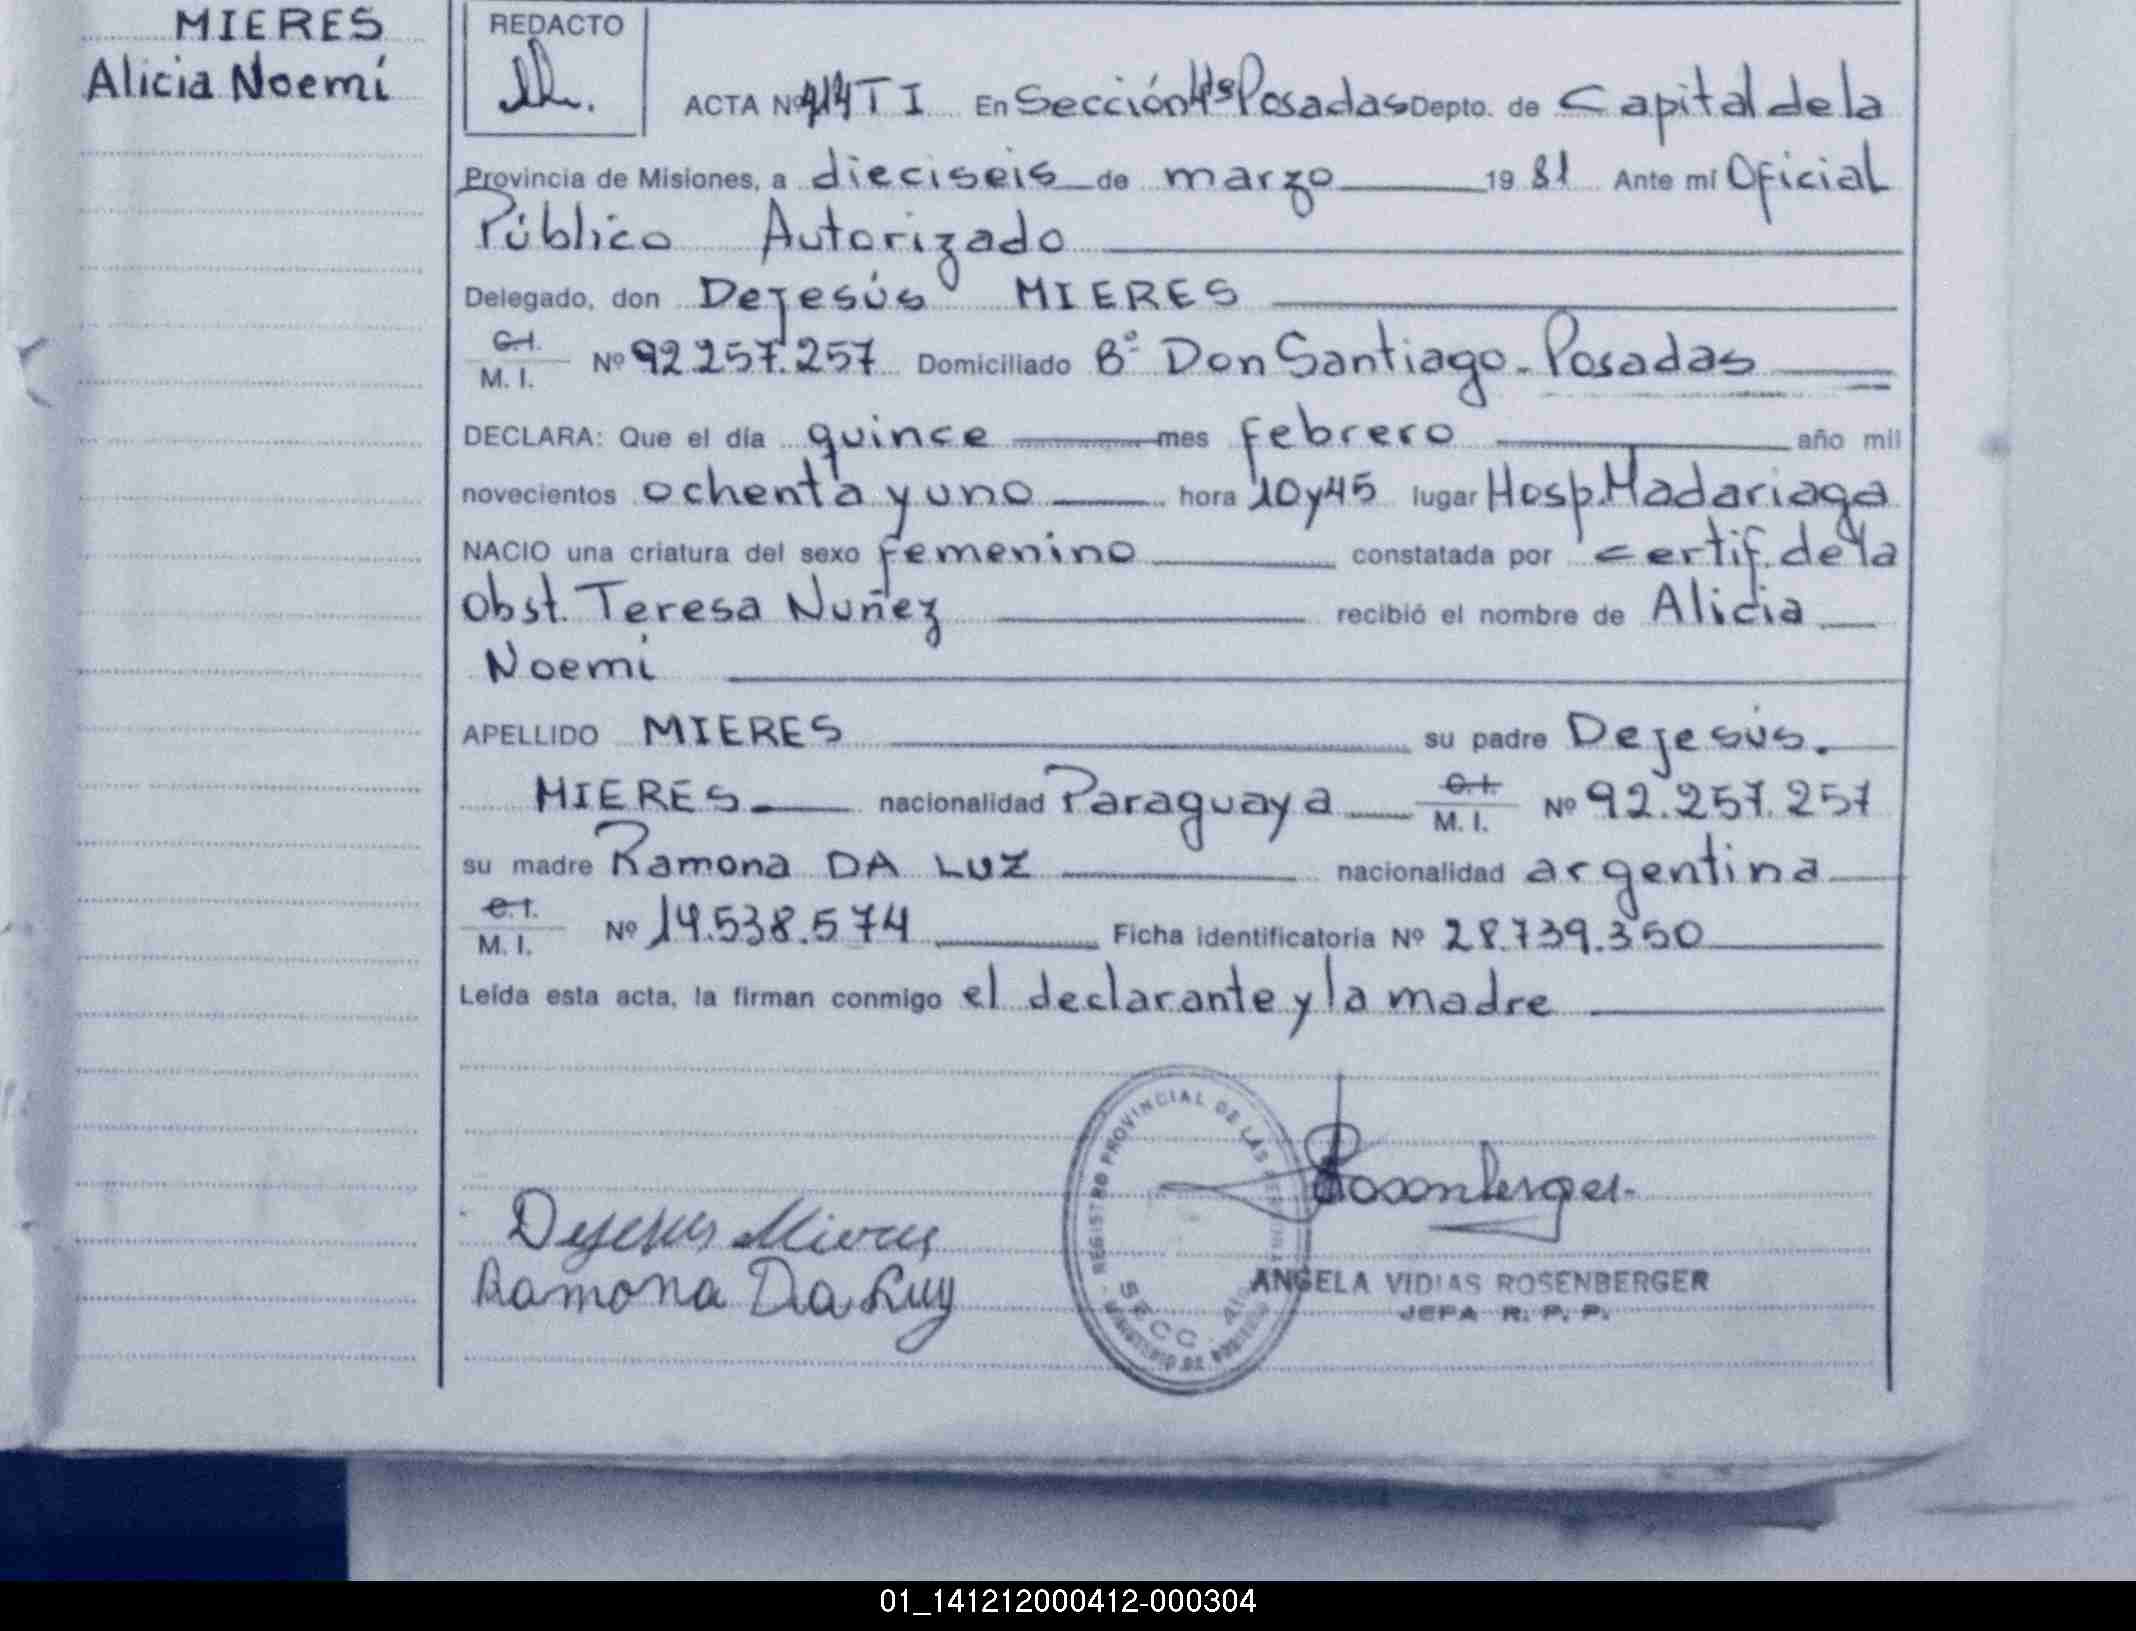 MIERES
Alicia Noemí
REDACTO
ACTA Nº 414 T I En Sección 4ª Posadas Depto. de Capital de la
Provincia de Misiones, a dieciseis de marzo 19 81 Ante mí Oficial
Público Autorizado
Delegado, don Dejesús MIERES
C.I.
M. I. Nº 92.257.257 Domiciliado Bº Don Santiago - Posadas
DECLARA: Que el día quince mes febrero año mil
novecientos ochenta y uno hora 10 y 45 lugar Hosp. Madariaga
NACIO una criatura del sexo femenino constatada por certif. de la
Obst. Teresa Nuñez recibió el nombre de Alicia
Noemí
APELLIDO MIERES su padre Dejesús.
MIERES nacionalidad Paraguaya C.I. M. I. Nº 92.257.257
su madre Ramona DA LUZ nacionalidad argentina
C.I.
M. I. Nº 14.538.574 Ficha identificatoria Nº 28.739.350
Leída esta acta, la firman conmigo el declarante y la madre
REGISTRO PROVINCIAL DE LAS PERSONAS
SECC. 4ta
MINISTERIO DE GOBIERNO
Rosenberger
Dejesus Mieres
Ramona Da Luz
ANGELA VIDIAS ROSENBERGER
JEFA R. P. P.
01_141212000412-000304